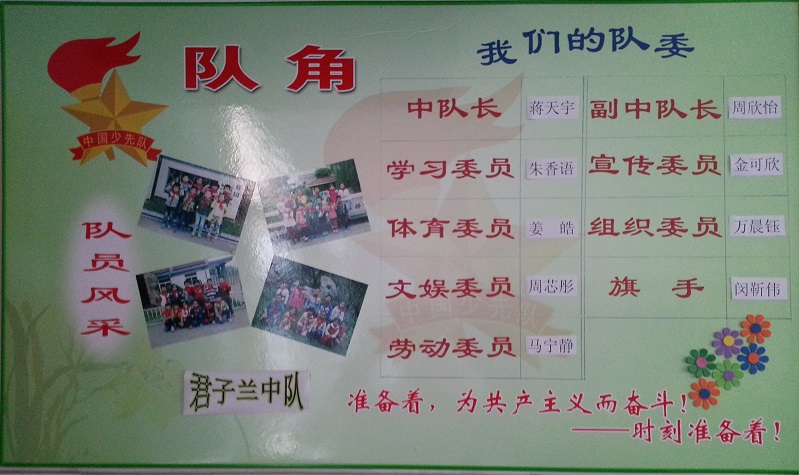 队角
我们的队委
中国少先队
中队长 蒋天宇 副中队长 周欣怡
学习委员 朱香语 宣传委员 金可欣
体育委员 姜皓 组织委员 万晨钰
文娱委员 周芯彤 旗手 闵靳伟
劳动委员 马宁静
队员风采
君子兰中队
准备着，为共产主义而奋斗！
——时刻准备着！
中国少先队